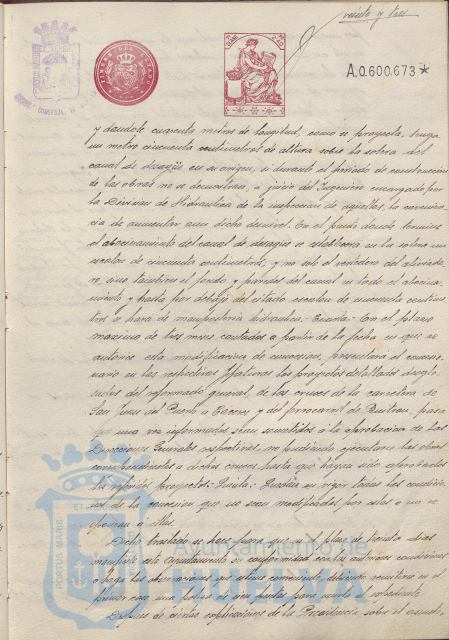 veinte y tres
A.0.600.673★
y dándole cuarenta metros de longitud, como se proyecta, tenga
un metro cincuenta centímetros de altura sobre la solera del
canal de desagüe en su origen, si durante el período de construcción
de las obras no se demostrara, a juicio del Ingeniero encargado por
la División de Hidráulica de la inspección de aquellas, la convenien-
cia de aumentar aun dicho desnivel. En el punto donde termina
el abocinamiento del canal de desagüe se establecerá en la solera un
escalón de cincuenta centímetros, y no solo el vertedero del aliviade-
ro, sino también el fondo y paredes del canal en todo el abocina-
miento y hasta por debajo del citado escalón de cincuenta centíme-
tros se hará de mampostería hidráulica.- Cuarta.- En el plazo
máximo de tres meses contados a partir de la fecha en que se
autorice esta modificación de concesión, presentará el concesio-
nario en las respectivas Jefaturas los proyectos detallados desglo-
sados del reformado general, de los cruces de la carretera de
San Juan del Puerto a Cáceres y del ferrocarril de Buitrón, para
que una vez informados sean sometidos a la aprobación de las
Direcciones Generales respectivas, no pudiendo ejecutarse las obras
correspondientes a dichos cruces hasta que hayan sido aprobados
los referidos proyectos.- Quinta.- Quedan en vigor todas las condicio-
nes de la concesión que no sean modificadas por estas o no se
opongan a ellas.
Dicho traslado se hace para que en el plazo de treinta días
manifieste este Ayuntamiento su conformidad con las anteriores condiciones
o haga las observaciones que estime conveniente, debiendo remitirse en el
primer caso una póliza de cien pesetas para unirla al expediente
Después de varias explicaciones de la Presidencia sobre el asunto,
Ayuntamiento de
PORTUS MARIS
ET